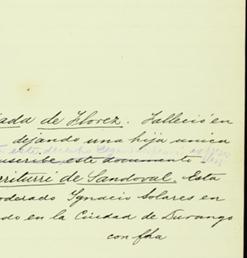 ada de Florez. Falleció en
dejando una hija unica
suscribe este documento
rrituri de Sandoval. Esta
oderado Ygnacio Solares en
do en la Ciudad de Durango
con fha